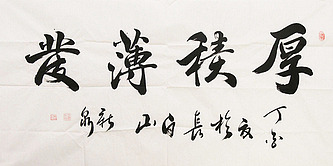 厚積薄發
丁亥夏於長白山新泉